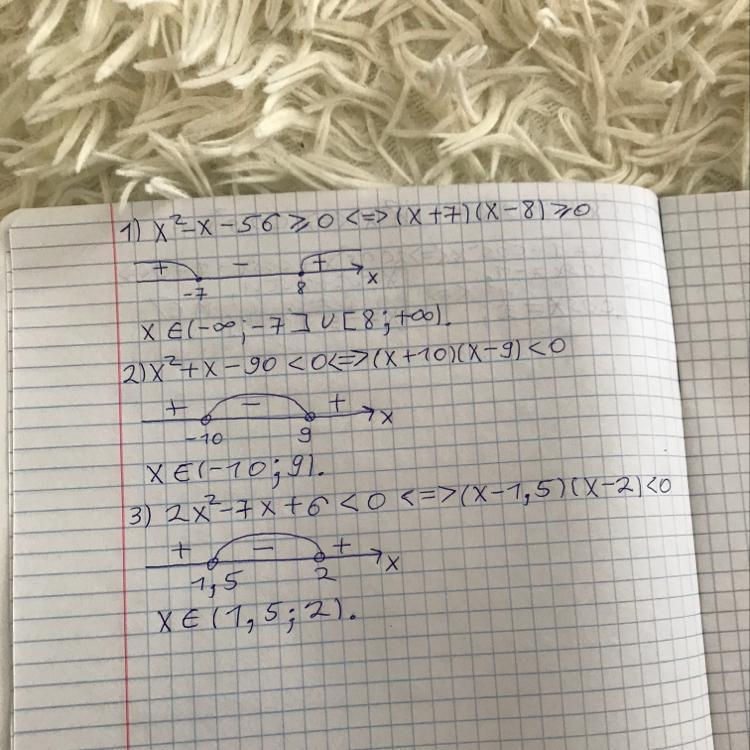 1) x²-x-56⩾0<=>(x+7)(x-8)⩾0
+ - + x
-7 8
x∈(-∞;-7]∪[8;+∞).
2)x²+x-90<0<=>(x+10)(x-9)<0
+ - + x
-10 9
x∈(-10;9).
3) 2x²-7x+6<0<=>(x-1,5)(x-2)<0
+ - + x
1,5 2
x∈(1,5;2).